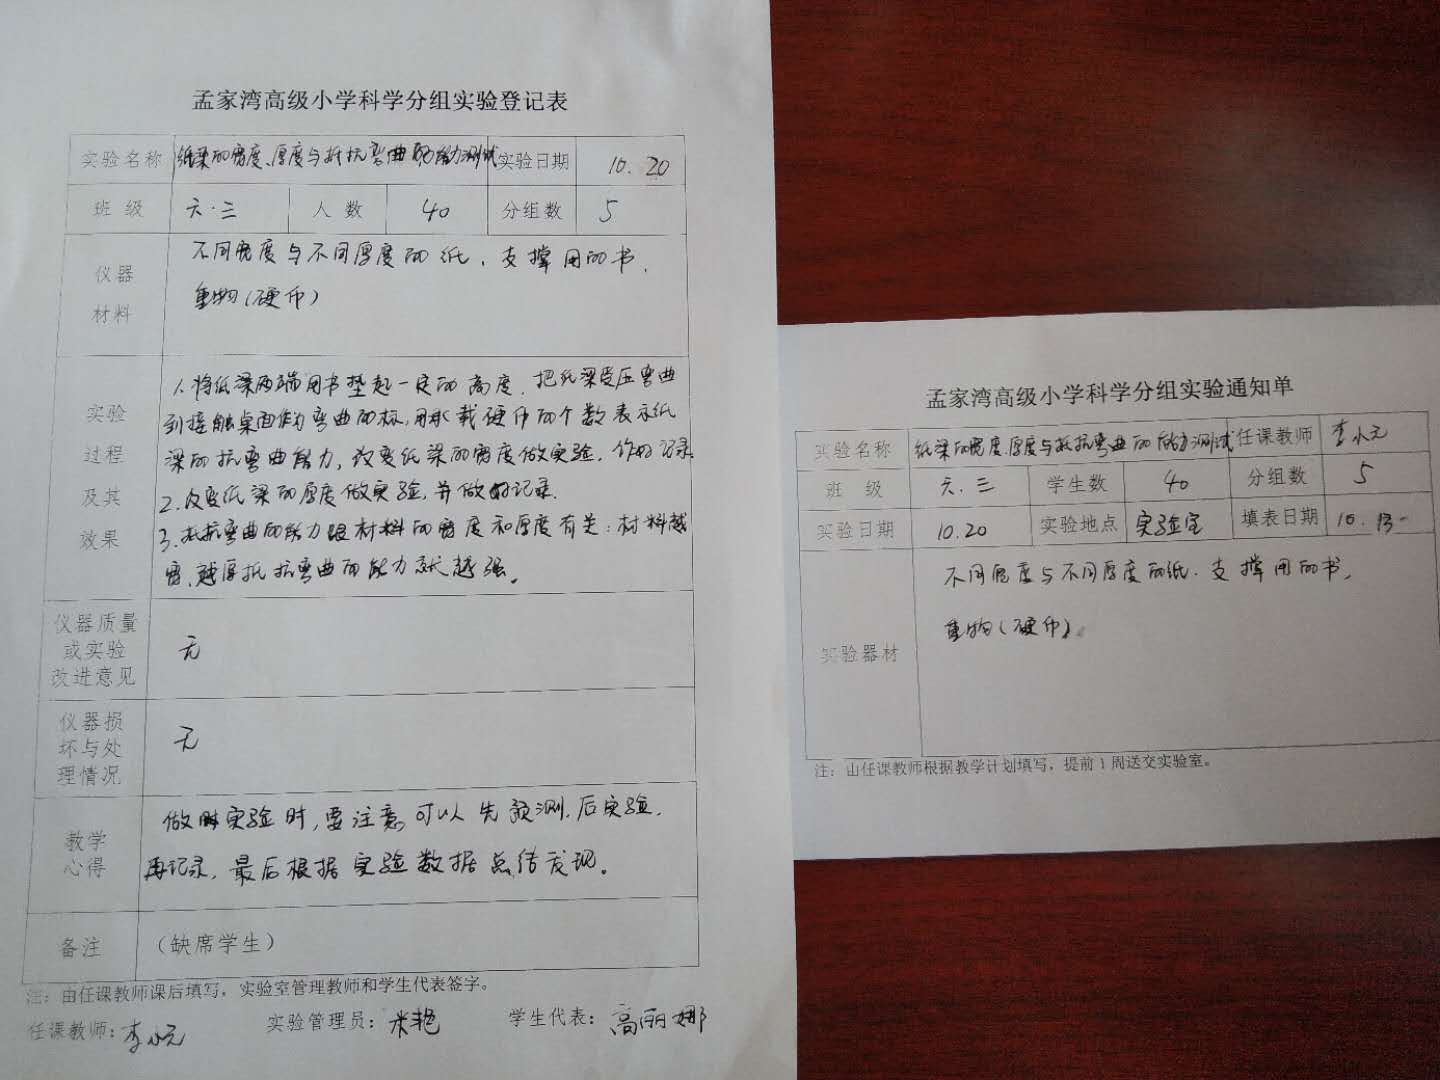 孟家湾高级小学科学分组实验登记表
实验名称 纸梁的宽度、厚度与抵抗弯曲的能力测试 实验日期 10.20
班 级 六.三 人 数 40 分组数 5
仪器
材料
不同宽度与不同厚度的纸、支撑用的书、
重物(硬币)
实验
过程
及其
效果
1、将纸梁两端用书垫起一定的高度、把纸梁受压弯曲
到接触桌面作为弯曲的标,用承载硬币的个数表示纸
梁的抗弯曲能力,改变纸梁的宽度做实验,作好记录
2、改变纸梁的厚度做实验,并做好记录.
3、抵抗弯曲的能力跟材料的宽度和厚度有关:材料越
宽、越厚抵抗弯曲的能力就越强。
仪器质量
或实验
改进意见
无
仪器损
坏与处
理情况
无
教学
心得
做实验时,要注意可以先预测.后实验.
再记录,最后根据实验数据总结发现。
备注 (缺席学生)
注:由任课教师课后填写,实验室管理教师和学生代表签字。
任课教师: 李小元 实验管理员: 米艳 学生代表: 高丽娜
孟家湾高级小学科学分组实验通知单
实验名称 纸梁的宽度、厚度与抵抗弯曲的能力测试 任课教师 李小元
班 级 六.三 学生数 40 分组数 5
实验日期 10.20 实验地点 实验室 填表日期 10.13
实验器材
不同宽度与不同厚度的纸、支撑用的书、
重物(硬币)
注:由任课教师根据教学计划填写,提前1周送交实验室。